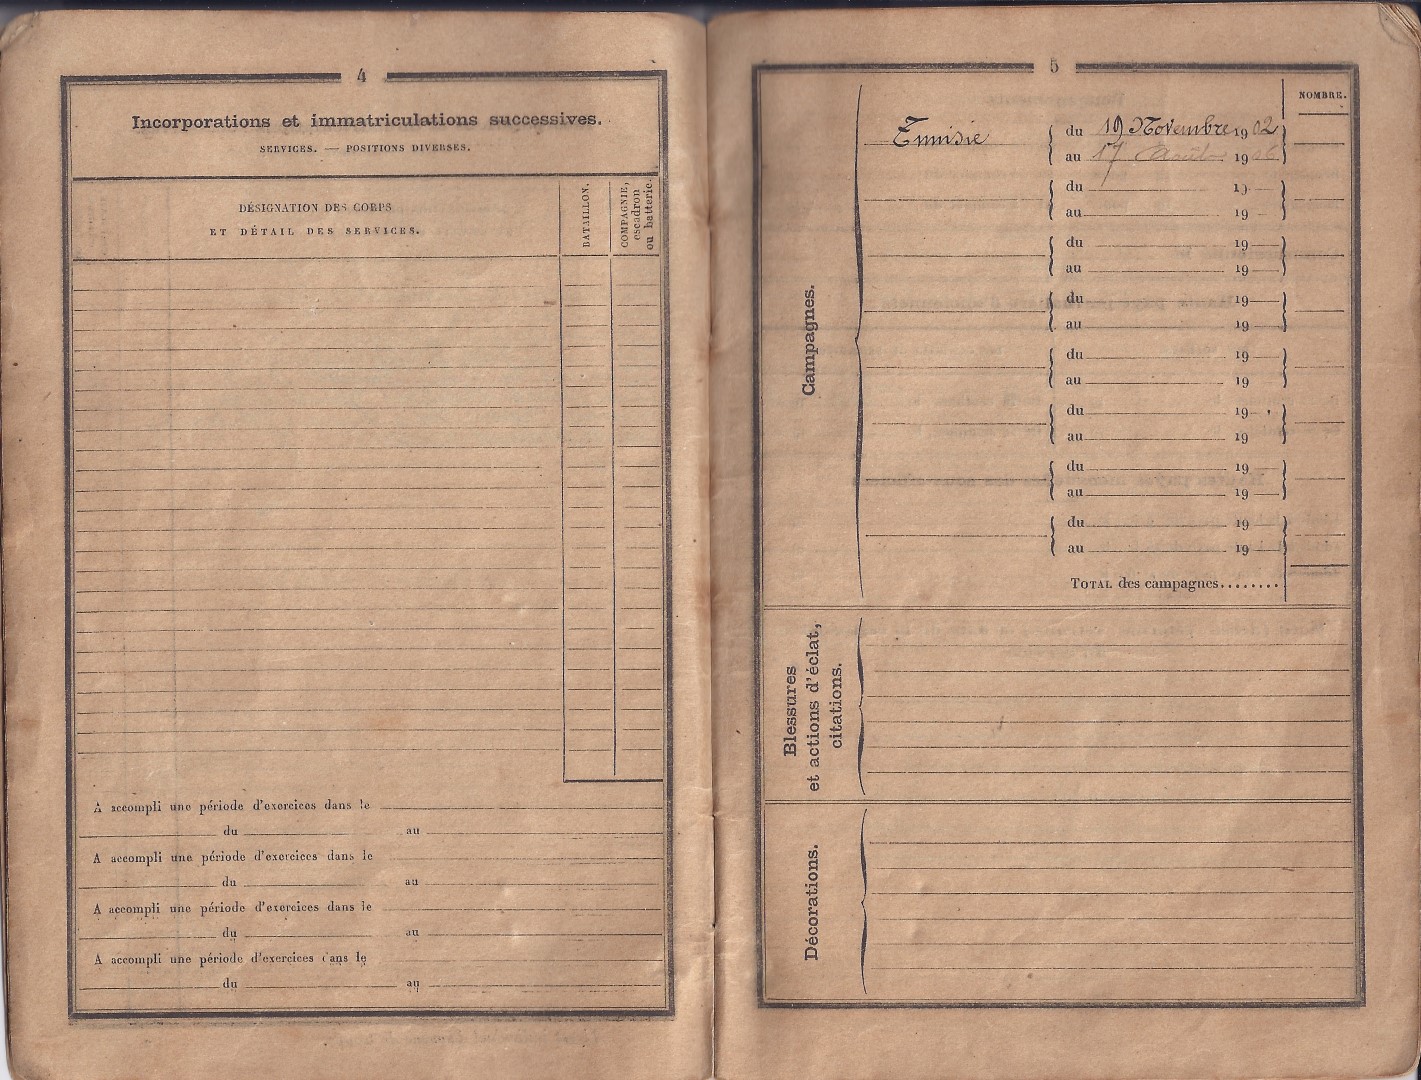 4
Incorporations et immatriculations successives.
SERVICES. — POSITIONS DIVERSES.
DÉSIGNATION DES CORPS
ET DÉTAIL DES SERVICES.
BATAILLON.
COMPAGNIE,
escadron
ou batterie.
A accompli une période d'exercices dans le
du au
A accompli une période d'exercices dans le
du au
A accompli une période d'exercices dans le
du au
A accompli une période d'exercices dans le
du au
5
NOMBRE.
Campagnes.
Tunisie
du 19 Novembre 1902
au 17 Août 1906
du 19
au 19
du 19
au 19
du 19
au 19
du 19
au 19
du 19
au 19
du 19
au 19
du 19
au 19
TOTAL des campagnes........
Blessures
et actions d'éclat,
citations.
Décorations.